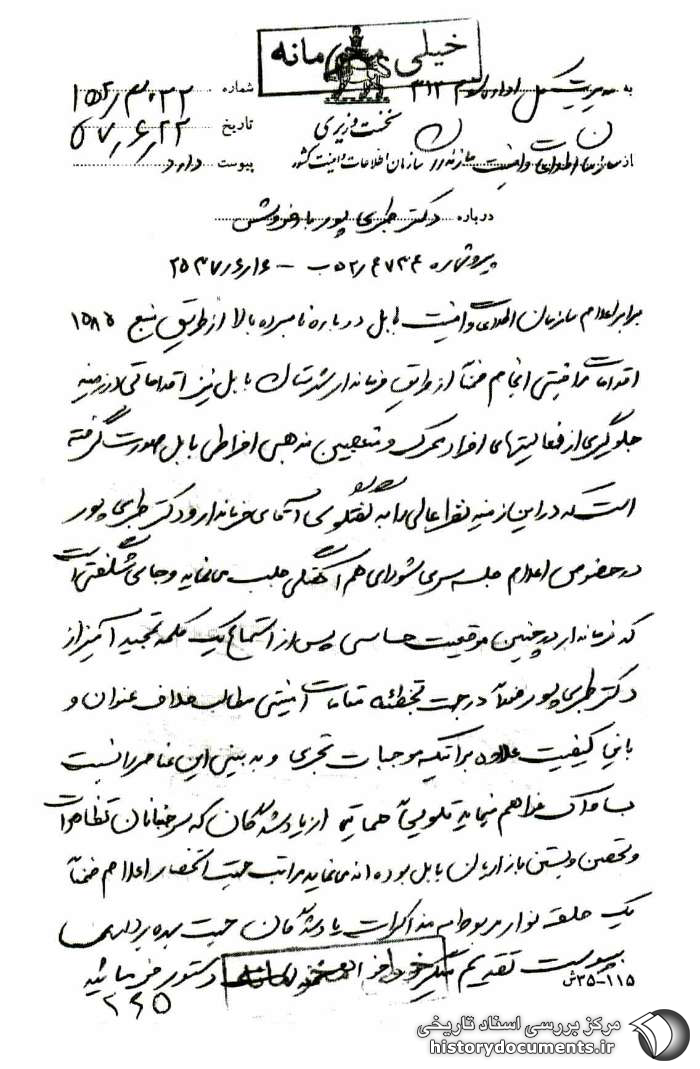 خیلی محرمانه
به مدیریت کل اداره سوم ۳۱۲ شماره
نخست وزیری تاریخ ۵۷٫۶٫۲۲
از سازمان اطلاعات و امنیت مازندران سازمان اطلاعات و امنیت کشور پیوست دارد
درباره دکتر طبری پور بافروشی
پیرو شماره
برابر اعلام سازمان اطلاعات و امنیت بابل درباره نامبرده بالا از طریق منبع ۱۵۸۵
اقدامات مراقبتی انجام ضمناً از طریق فرماندار شهرستان بابل نیز اقداماتی در زمینه
جلوگیری از فعالیتهای افراد محرک و متعصبین مذهبی افراطی بابل صورت گرفته
است که در این زمینه نظر عالی را به گفتگوی آقای فرماندار و دکتر طبری پور
در خصوص اعلام جلسه سری شورای هم آهنگی جلب می نماید و جای شگفتی است
که فرماندار در چنین موقعیت حساسی پس از استماع یک کلمه تمجید آمیز از
دکتر طبری پور عملاً در جهت تخطئه مقامات امنیتی مطالب خلاف عنوان و
با این کیفیت علاوه بر آنکه موجبات تجری و بد بینی این عناصر را نسبت
بساواک فراهم مینماید تلویحاً حمایت از یاد شدگان که سر جنبانان تظاهرات
و تحصن و بستن بازاریان بابل بوده اند می نماید مراتب جهت استحضار اعلام ضمناً
یک حلقه نوار مربوط به مذاکرات یاد شدگان جهت بهره برداری
بپیوست تقدیم میگردد دستور فرمائید
۱۱۵-۳۵ش
مرکز بررسی اسناد تاریخی
historydocuments.ir